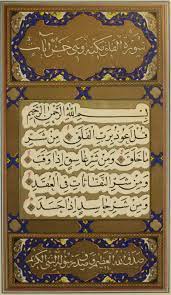 سورة الفلق مكية وهي خمس آيات
بِسْمِ اللَّهِ الرَّحْمَٰنِ الرَّحِيمِ
قُلْ أَعُوذُ بِرَبِّ الْفَلَقِ مِنْ شَرِّ
مَا خَلَقَ وَمِنْ شَرِّ غَاسِقٍ إِذَا وَقَبَ
وَمِنْ شَرِّ النَّفَّاثَاتِ فِي الْعُقَدِ
وَمِنْ شَرِّ حَاسِدٍ إِذَا حَسَدَ
صدق الله العظيم وصدق رسوله النبي الكريم